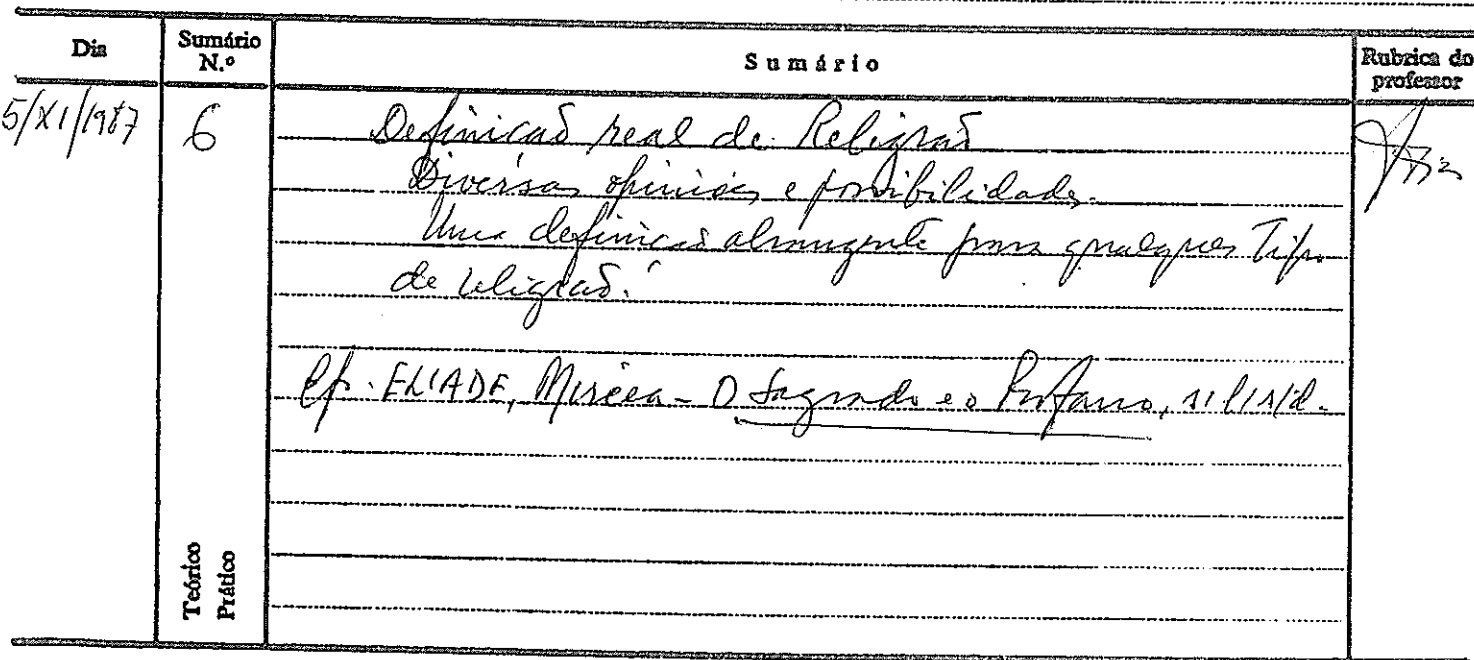 Dia
Sumário N.º
Sumário
Rubrica do professor
5/XI/1987
6
Definicaõ real de Religiaõ
Diversas opiniões e possibilidades.
Uma definicaõ abrangente para qualquer Tipo
de religiaõ.
Cf. ELIADE, Mircea - O Sagrado e o Profano, s/l/s/d.
Teórico
Prático